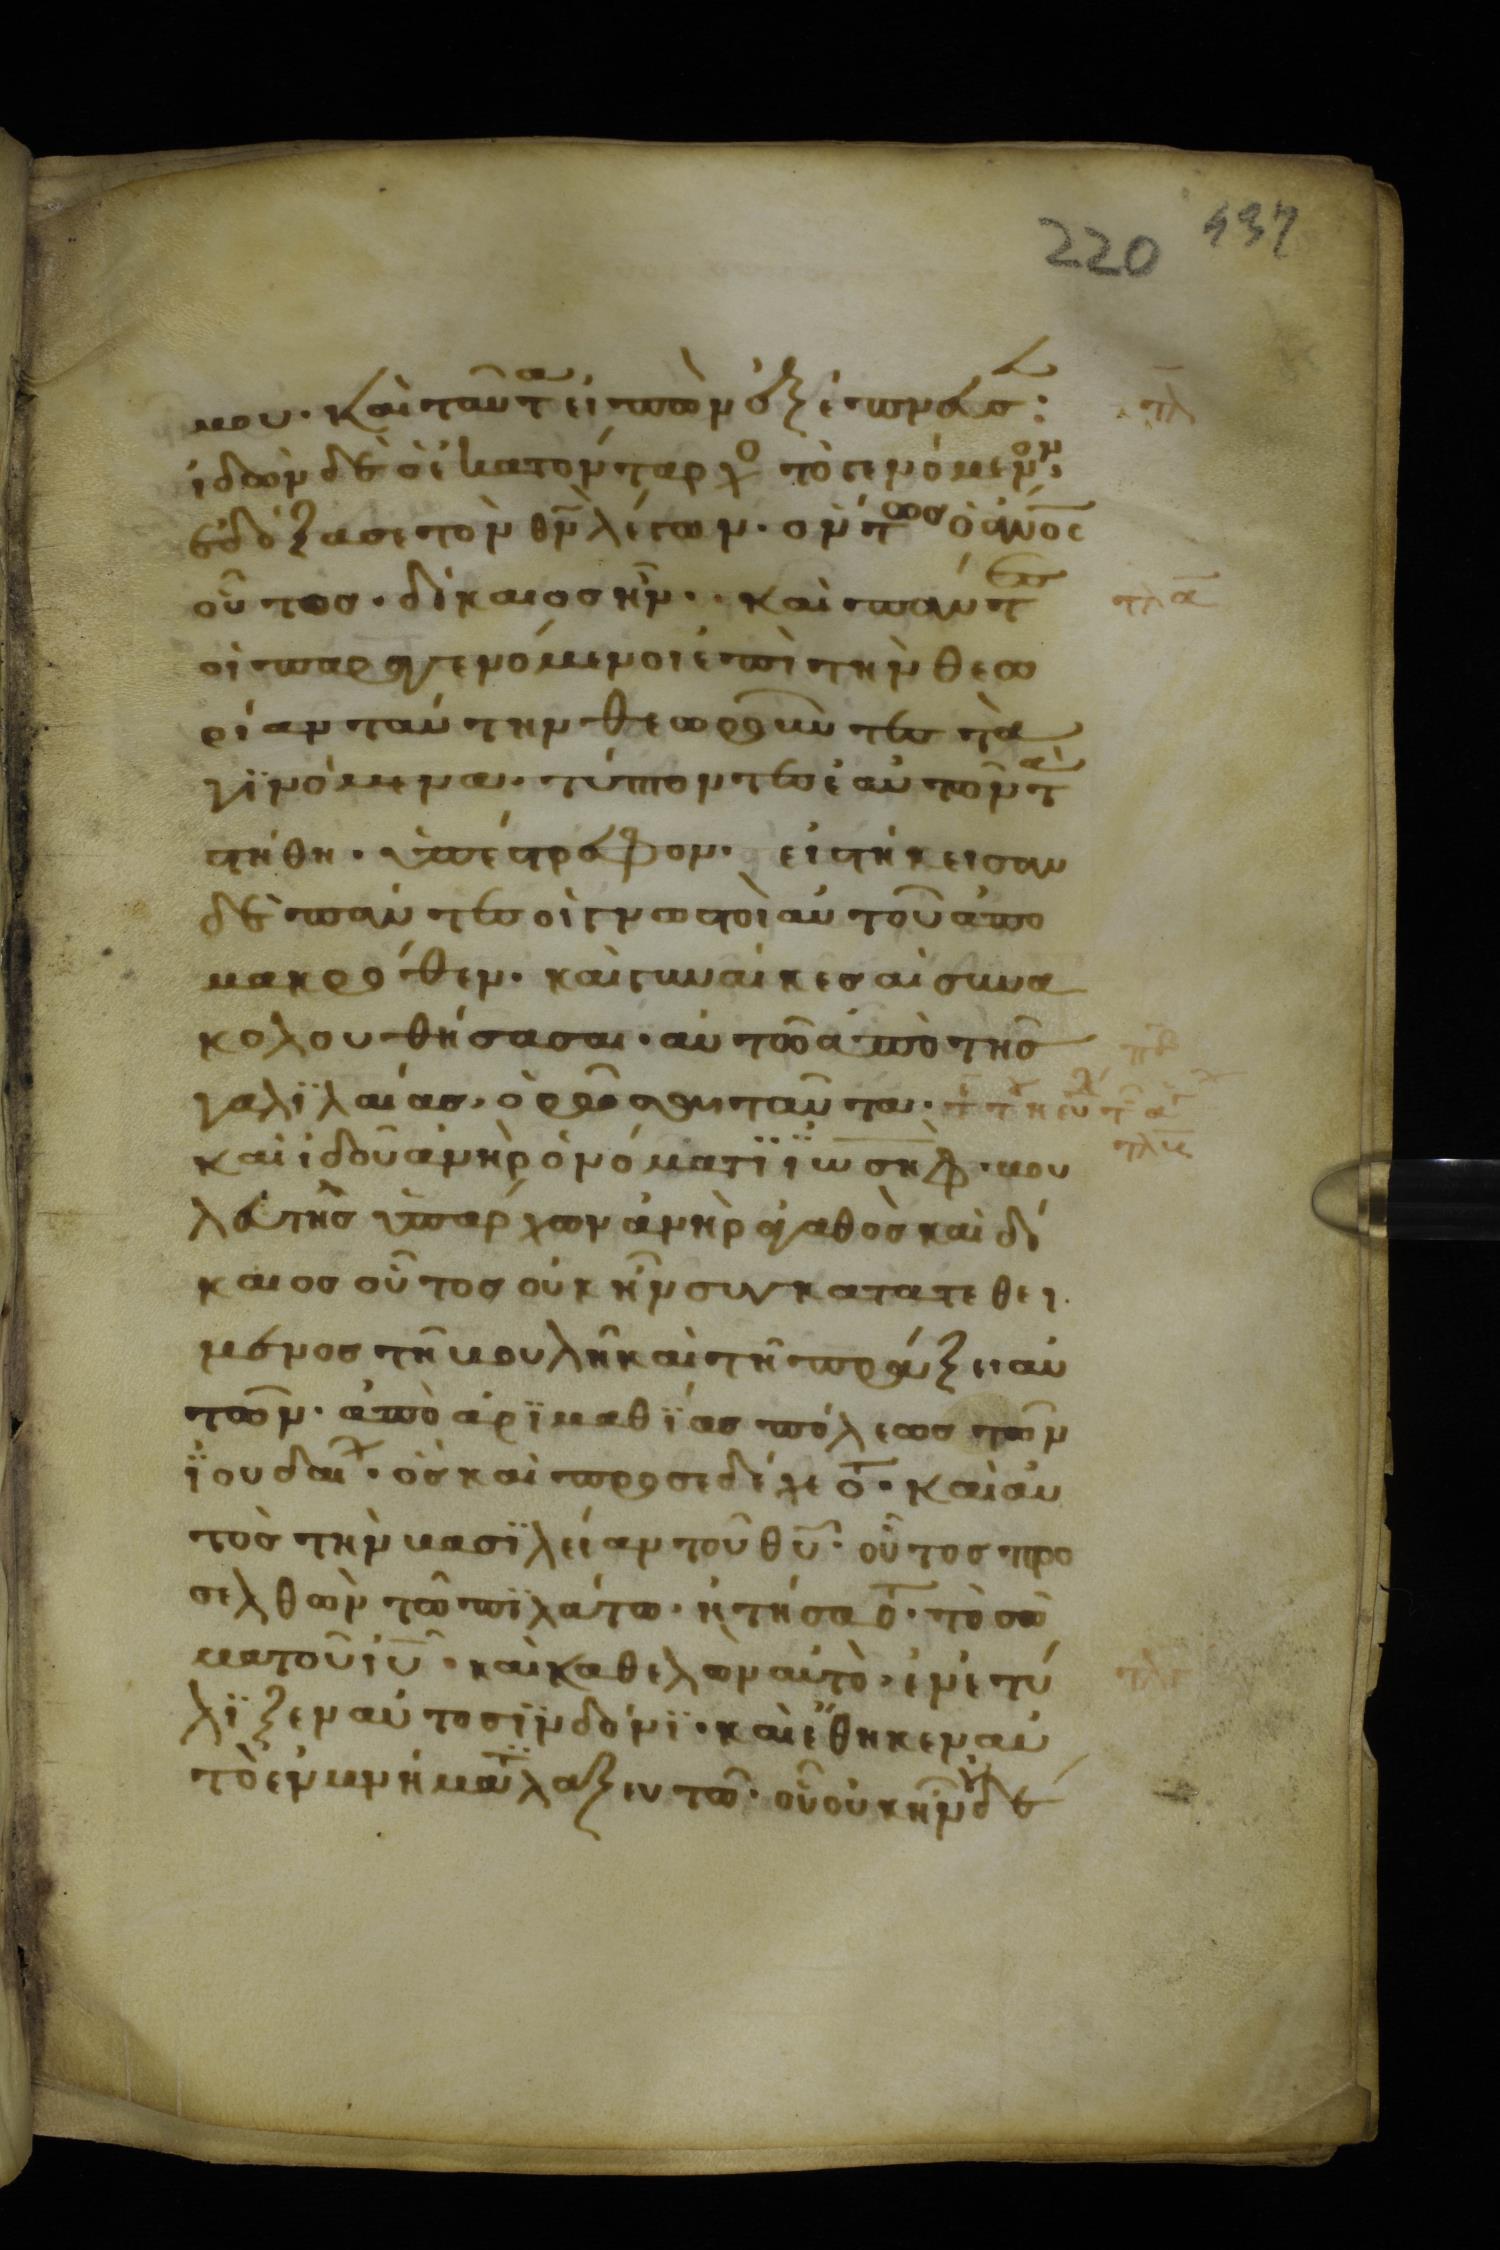 220 437
μου· καὶ ταῦτα εἰπὼν ἐξέπνευσ:
ἰδὼν δὲ ὁ ἑκατόνταρχο τὸ γενόμενον,
ἐδόξασε τὸν θν λέγων· ὄντως ὁ ἀνος
οὗτος· δίκαιος ἦν· καὶ πάντες
οἱ παραγενόμενοι ἐπὶ τὴν θεω
ρίαν ταύτην θεωροῦντες τὰ
γϊνόμενα· τύπτοντες ἑαυτῶν τὰ
στήθη· ὑπέστρεφον· εἱστήκεισαν
δὲ πάντες οἱ γνωστοὶ αὐτοῦ ἀπο
μακρόθεν· καὶ γυναίκες αἱ συνα
κολουθήσασαι· αὐτῶ ἀπὸ τῆσ
γαλϊλαίας, ὁρῶσαι ταῦτα·
καὶ ἰδοῦ ἀνὴρ ὀνόματϊ ϊωσὴφ· βου
λευτὴς ὑπάρχων ἀνὴρ ἀγαθὸς καὶ δί
καιος οὗτος οὐκ ἦν συγκατατεθει
μένος τῆ βουλῆ καὶ τῆ πράξει αὐ
τῶν· ἀπὸ ἀρϊμαθϊας πόλεως τῶν
ϊουδαι· ὃς καὶ προσεδέχετο· καὶ αὐ
τὸς τὴν βασϊλείαν τοῦ θυ· οὗτος προ
σελθὼν τῶ πϊλάτω· ἠτήσατο· τὸ σῶ
μα τοῦ ιυ· καὶ καθελὼν αὐτὸ, ἐνετύ
λϊξεν αὐτο σϊνδόνϊ· καὶ ἔθηκεν αὐ
τὸ ἐν μνήματϊ λαξευτῶ· οὗ οὐκ ἦν οὐδέ